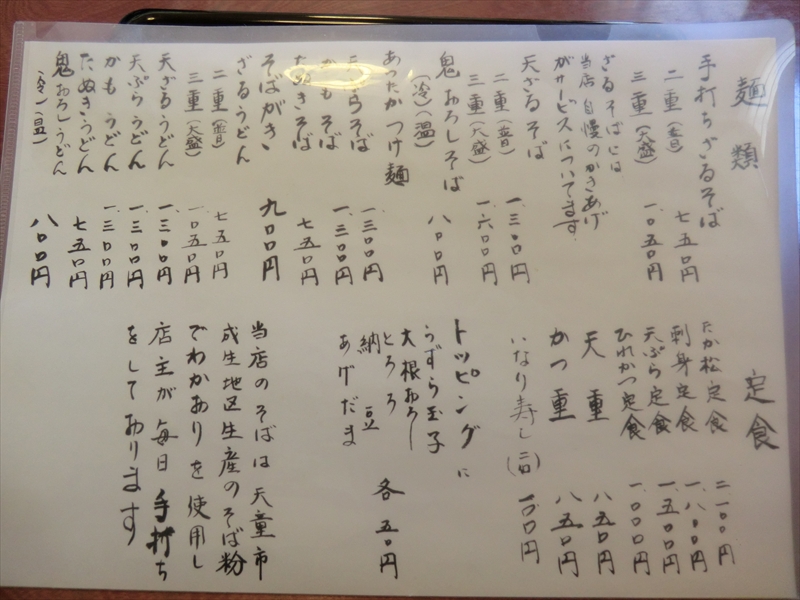 麺類
手打ちざるそば
二重(普) 七五〇円
三重(大盛) 一、〇五〇円
ざるそばには
当店自慢のかきあげ
がサービスについてます
天ざるそば
二重(普) 一、三〇〇円
三重(大盛) 一、六〇〇円
鬼おろしそば 八〇〇円
(冷)(温)
あったかつけ麺
天ぷらそば 一、三〇〇円
かもそば 一、三〇〇円
たぬきそば 七五〇円
そばがき 九〇〇円
ざるうどん
二重(普) 七五〇円
三重(大盛) 一、〇五〇円
天ざるうどん 一、三〇〇円
天ぷらうどん 一、三〇〇円
かもうどん 一、三〇〇円
たぬきうどん 七五〇円
鬼おろしうどん 八〇〇円
(冷)(温)
定食
たか松定食 二、一〇〇円
刺身定食 一、八〇〇円
天ぷら定食 一、五〇〇円
ひれかつ定食 一、〇〇〇円
天重 八五〇円
かつ重 八五〇円
いなり寿し(二ヶ) 一〇〇円
トッピングに
うずら玉子
大根おろし
とろろ
納豆
あげだま
各五〇円
当店のそばは天童市
成生地区生産のそば粉
でわかおりを使用し
店主が毎日手打ち
をしております